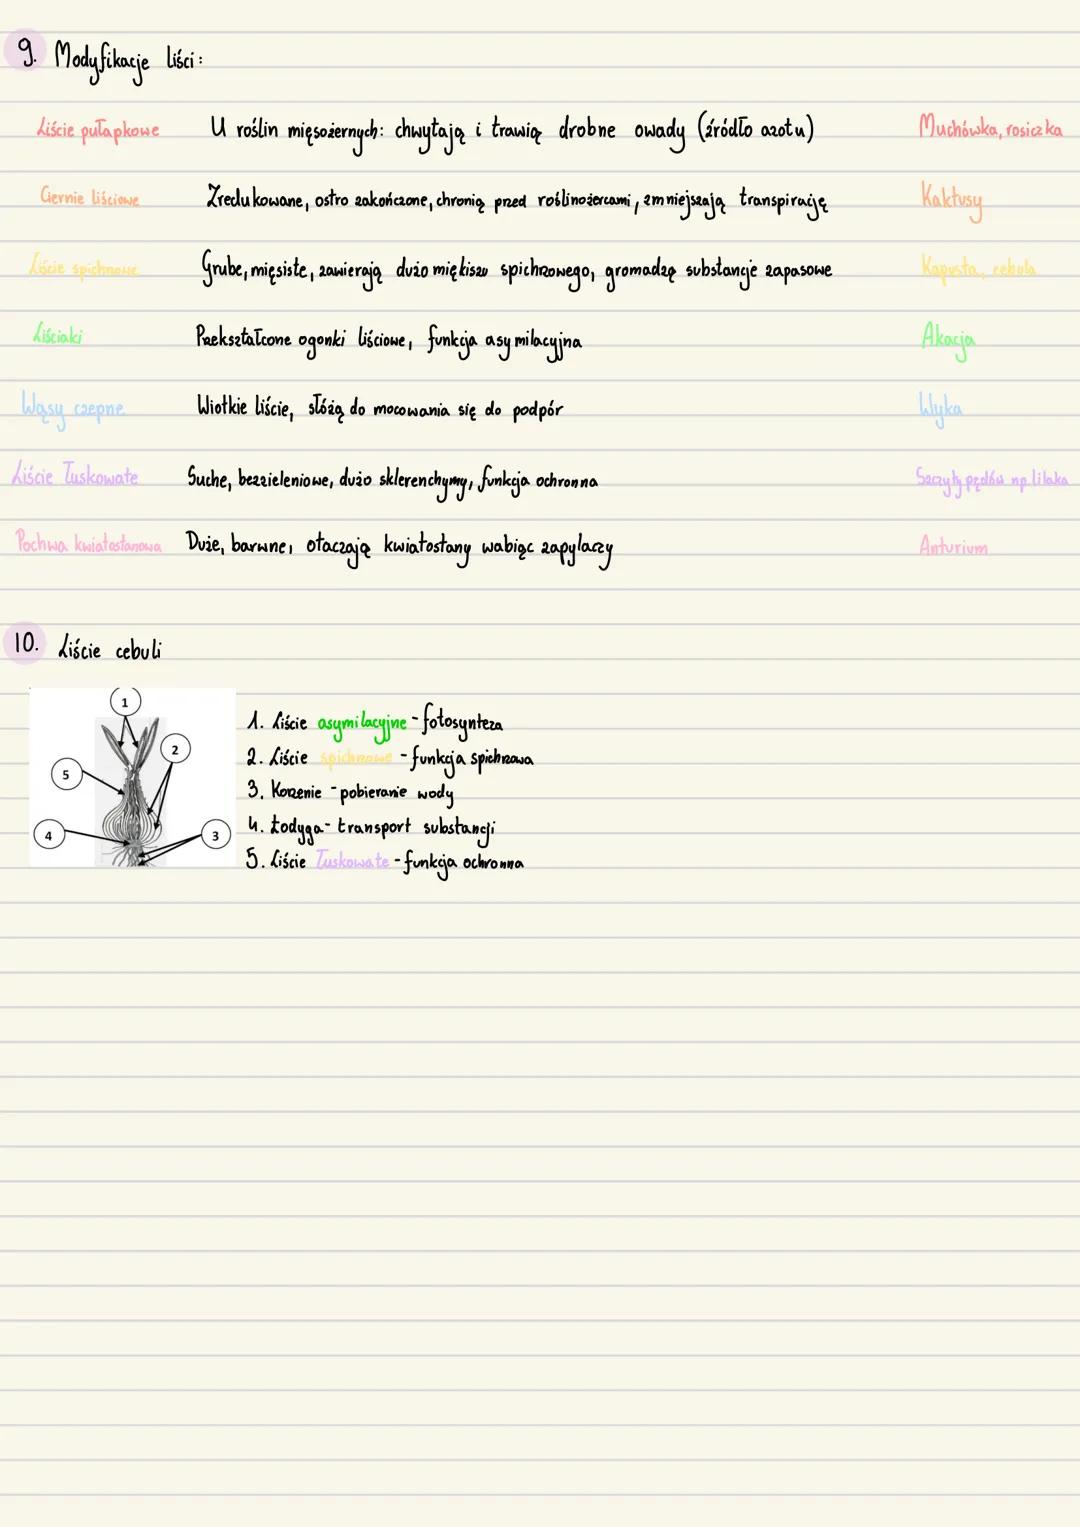 9. Modyfikacje liści:
Liście pułapkowe U roślin mięsożernych: chwytają i trawią drobne owady (źródło azotu) Muchówka, rosiczka
Ciernie liściowe Zredukowane, ostro zakończone, chronią przed roślinożercami, zmniejszają transpirację Kaktusy
Liście spichrzowe Grube, mięsiste, zawierają dużo miękiszu spichrzowego, gromadzą substancje zapasowe Kapusta, cebula
Liściaki Przekształcone ogonki liściowe, funkcja asymilacyjna Akacja
Wąsy czepne Wiotkie liście, słóżą do mocowania się do podpór Wyka
Liście łuskowate Suche, bezzieleniowe, dużo sklerenchymy, funkcja ochronna Szczyty pędów np. lilaka
Pochwa kwiatostanowa Duże, barwne, otaczają kwiatostany wabiąc zapylaczy Anturium
10. Liście cebuli
1
2
5
4
3
1. Liście asymilacyjne - fotosynteza
2. Liście spichrzowe - funkcja spichrzowa
3. Korzenie - pobieranie wody
4. Łodyga - transport substancji
5. Liście łuskowate - funkcja ochronna